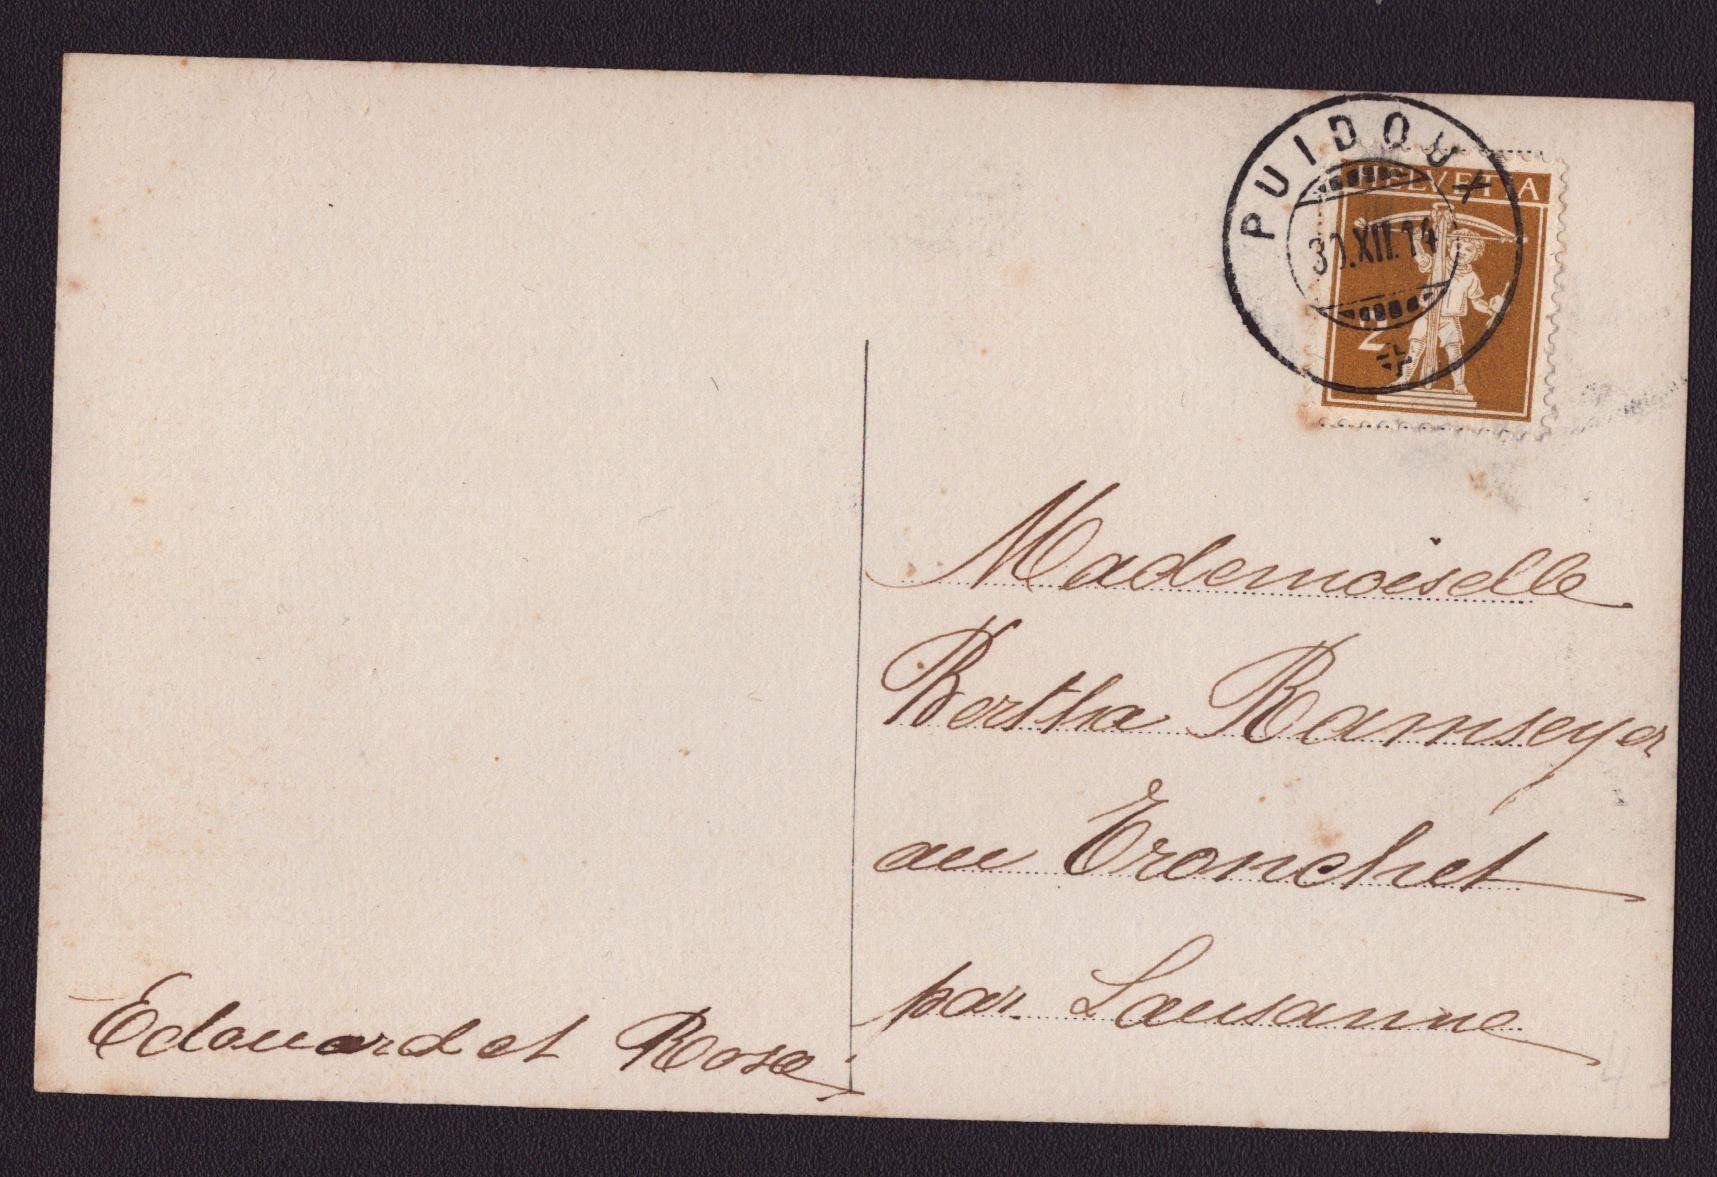 PUIDOUX
HELVETIA
30.XII.14
2
Mademoiselle
Bertha Ramseyer
au Tronchet
par Lausanne
Edouard et Rosa
4